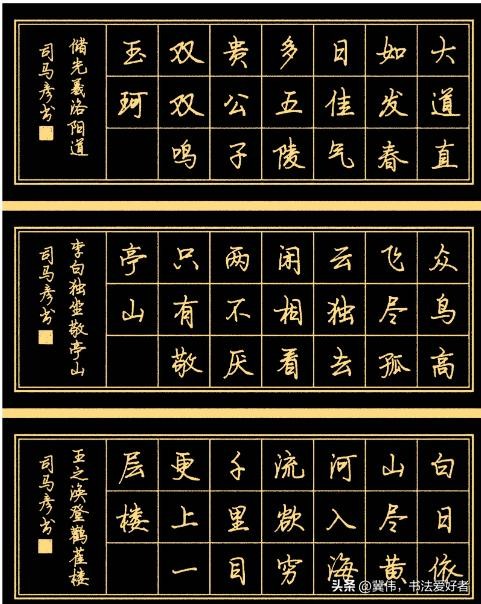 大道直
如发春
日佳气
多五陵
贵公子
双双鸣
玉珂
储光羲洛阳道
司马彦书
众鸟高
飞尽孤
云独去
闲相看
两不厌
只有敬
亭山
李白独坐敬亭山
司马彦书
白日依
山尽黄
河入海
流欲穷
千里目
更上一
层楼
王之涣登鹳雀楼
司马彦书
头条 @冀伟，书法爱好者